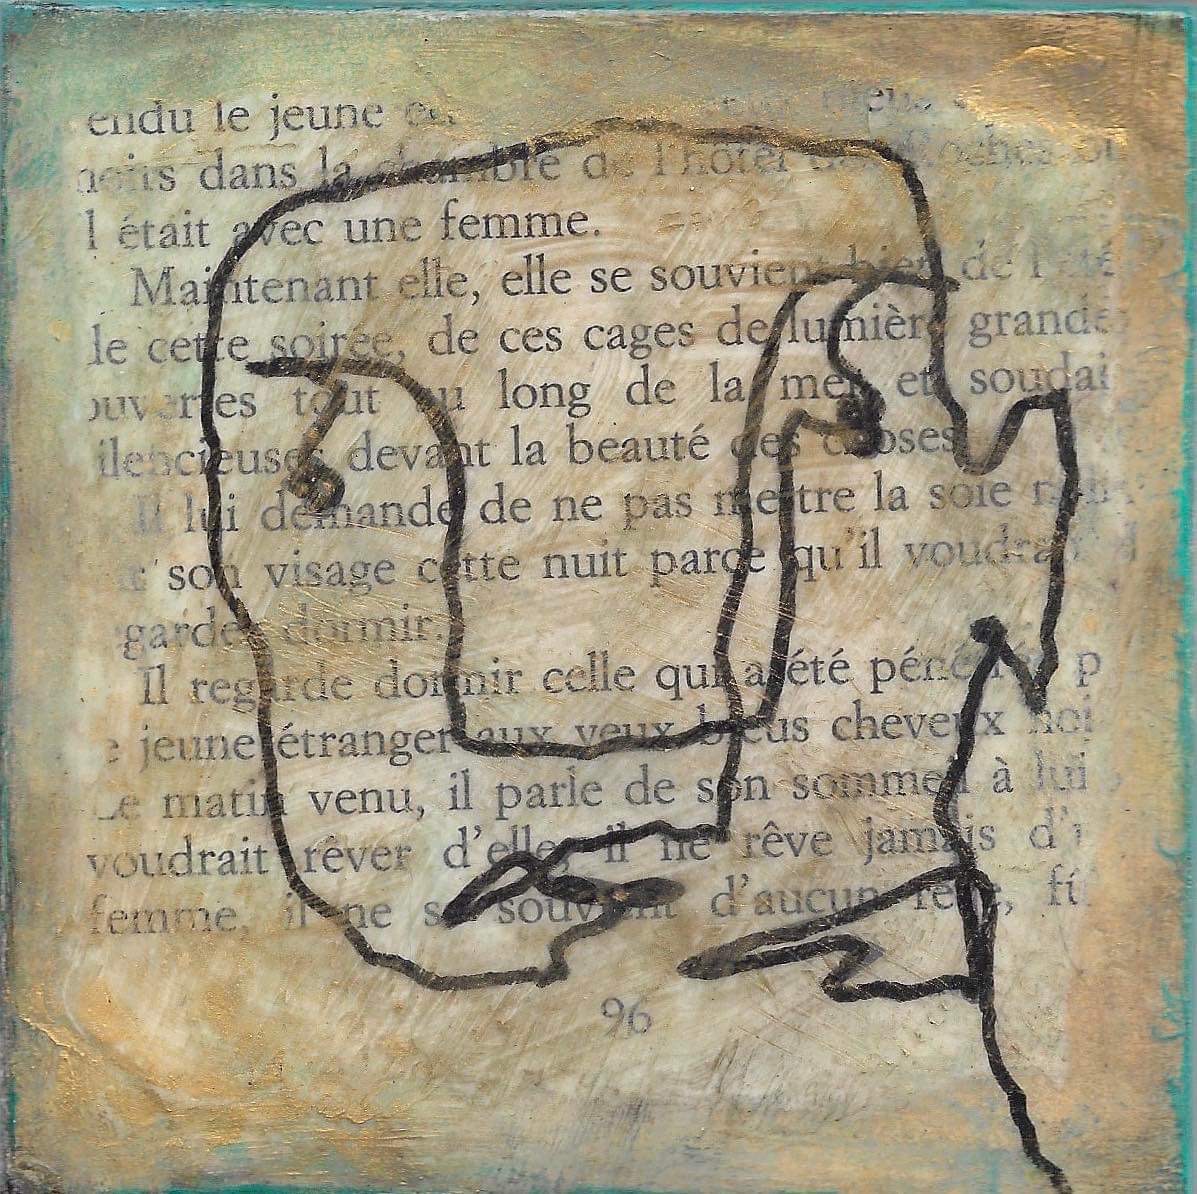 endu le jeune
dans la chambre de l'hôtel des Roches
l était avec une femme.
Maintenant elle, elle se souvient bien de l'été
le cette soirée, de ces cages de lumière grande
ouvertes tout au long de la mer et soudai
ilencieuses devant la beauté des choses
Il lui demande de ne pas mettre la soie
son visage cette nuit parce qu'il voudrait
garder dormir.
Il regarde dormir celle qui a été p
e jeune étranger aux yeux bleus cheveux noi
Le matin venu, il parle de son sommeil à lui
voudrait rêver d'elle, il ne rêve jamais d'
femme, il ne se souvient d'aucun rêve,
96